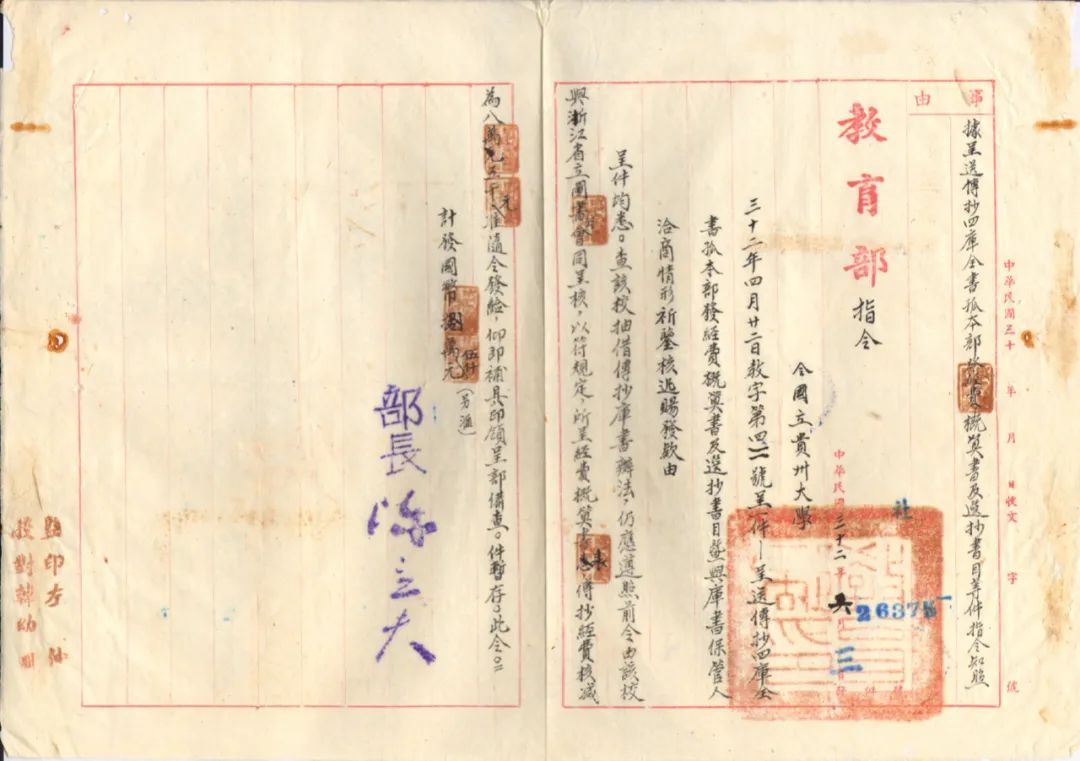 事由
據呈送傳抄四庫全書孤本部發經費概算書及選抄書目等件指令知照
中華民國三十年月日收文字號
教育部指令
令國立貴州大學
中華民國三十二年六月三日發
社
26375
三十二年四月廿二日教字第四二一號呈一件—呈送傳抄四庫全
書孤本部發經費概算書及選抄書目暨與庫書保管人
洽商情形祈鑒核迅賜發款由
呈件均悉。查該校抽借傳抄庫書辦法，仍應遵照前令由該校
與浙江省立圖書館會同呈核，以符規定，所呈經費概算表悉，傳抄經費核減
為八萬五千元准隨令發給，仰即補具印領呈部備查。件暫存。此令。
計發國幣捌萬伍仟元（另滙）
部長陳立夫
監印李
校對韓幼